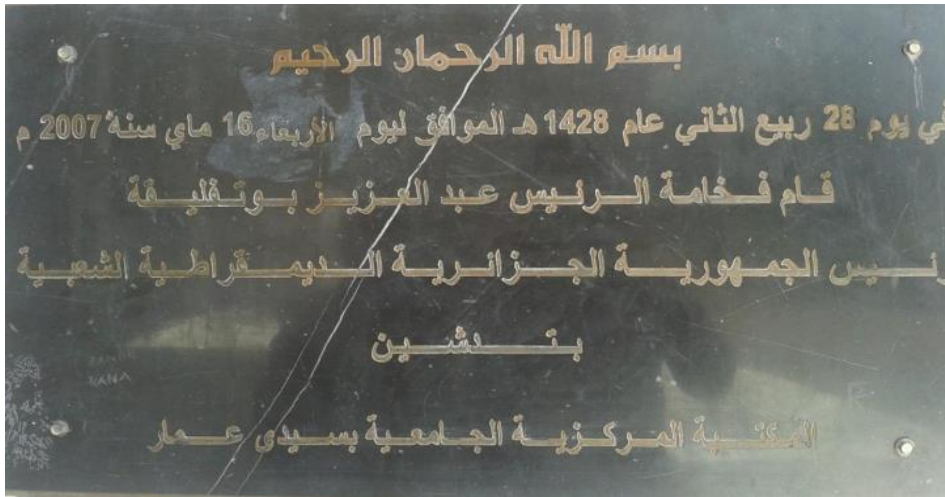 بسم الله الرحمان الرحيم
في يوم 28 ربيع الثاني عام 1428 هـ الموافق ليوم الأربعاء 16 ماي سنة 2007 م
قام فخامة الرئيس عبد العزيز بوتفليقة
رئيس الجمهورية الجزائرية الديمقراطية الشعبية
بتدشين
المكتبة المركزية الجامعية بسيدي عمار